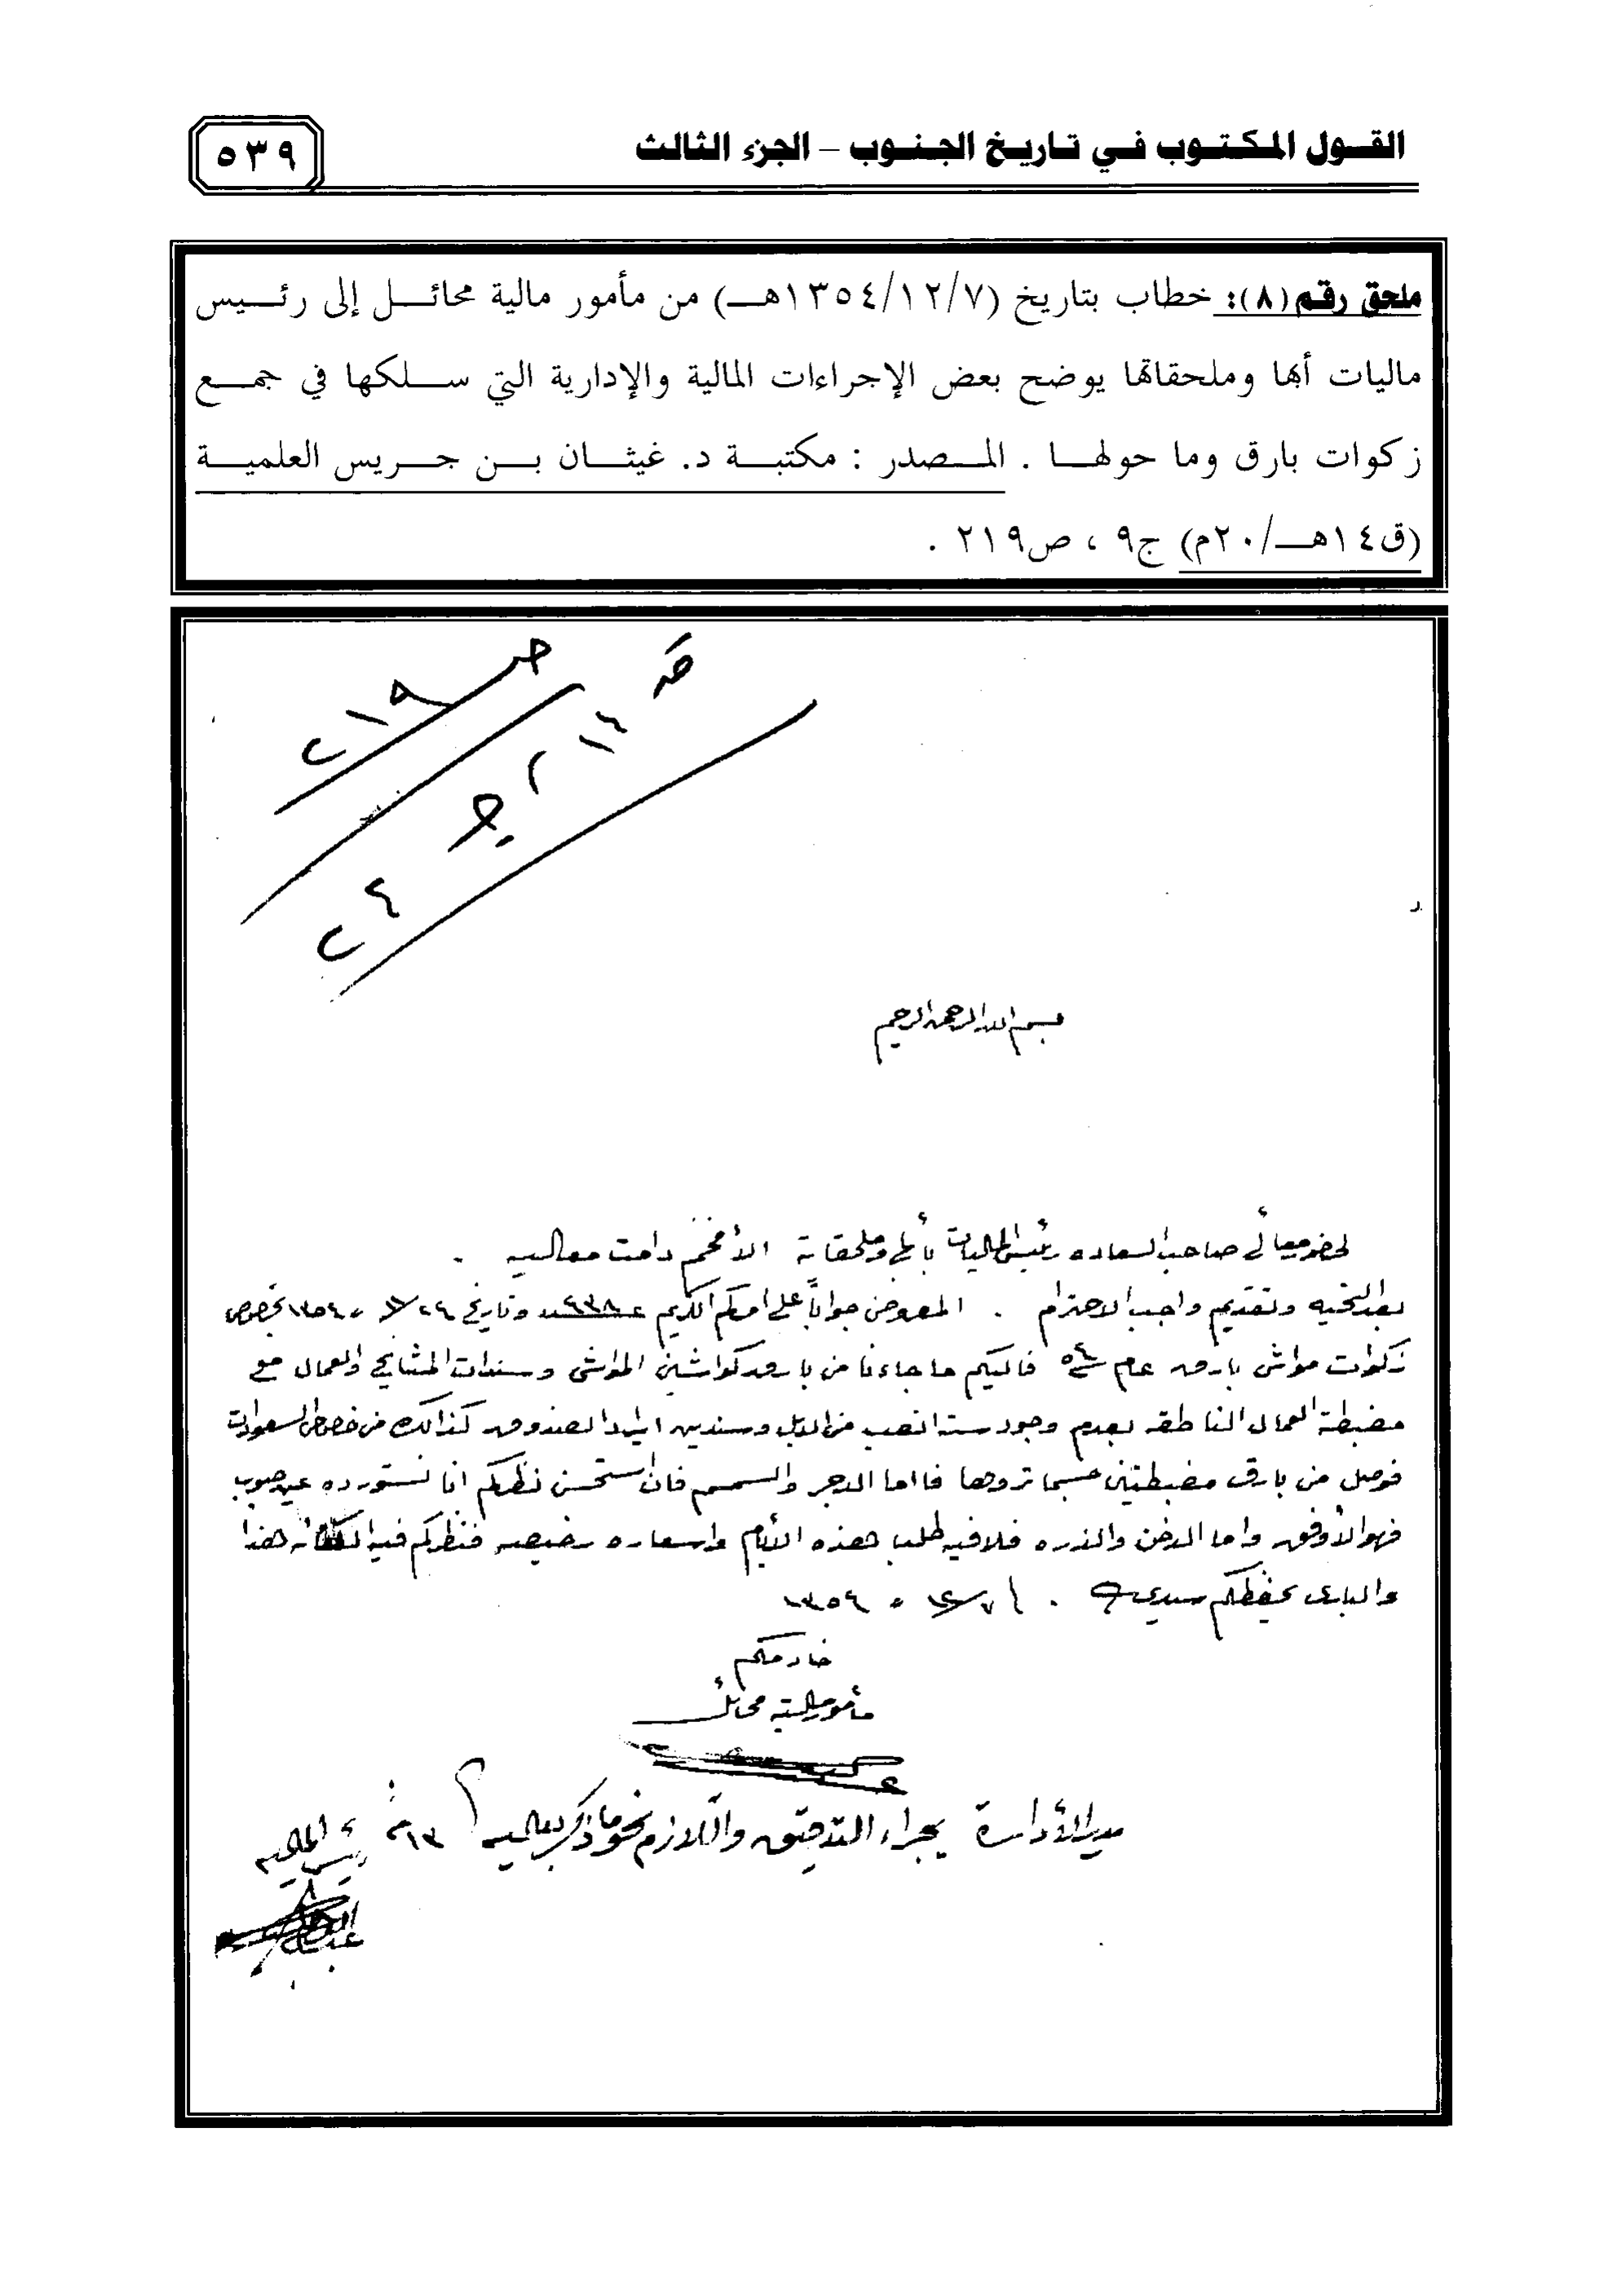 القول المكتوب في تاريخ الجنوب – الجزء الثالث
٥٣٩
ملحق رقم (٨): خطاب بتاريخ (١٣٥٤/١٢/٧هـ) من مأمور مالية محائل إلى رئيس
ماليات أبها وملحقاتها يوضح بعض الإجراءات المالية والإدارية التي سلكها في جمع
زكوات بارق وما حولها . المصدر : مكتبة د. غيثان بن جريس العلمية
(ق١٤هـ/٢٠م) ج٩ ، ص٢١٩ .
بسم الله الرحمن الرحيم
لحضرة معالي صاحب السعاده رئيس الماليات بأبها وملحقاته الأفخم دامت معاليه .
بعد التحيه وتقديم واجب الاحترام . المعروض جواباً على امركم الكريم وتاريخ بخصوص
زكوات مواشي بارق عام ٥٤ فاليكم ما جاءنا من بارق كواشين المواشي وسندات المشايخ والعمال مع
مضبطة العمال الناطقه بعدم وجود ستة انصب من الابل وسندين ايراد الصندوق كذالك من خصوص
فوصل من بارق مضبطتين حسبما تروها فااما الدجر والسمسم فان استحسن نظركم انا نستورده عين حبوب
فهو الأوفق واما الدخن والذره فلا فيه طلب هذه الأيام واسعاره رخيصه فنظركم فيه هذا
والباري يحفظكم سيدي . ٧/١٢ ١٣٥٤
خادمكم
مأمور مالية محائل
مدير الأدارة يجراء التدقيق واللازم نحو ما ذكر بعاليه
رئيس الماليه